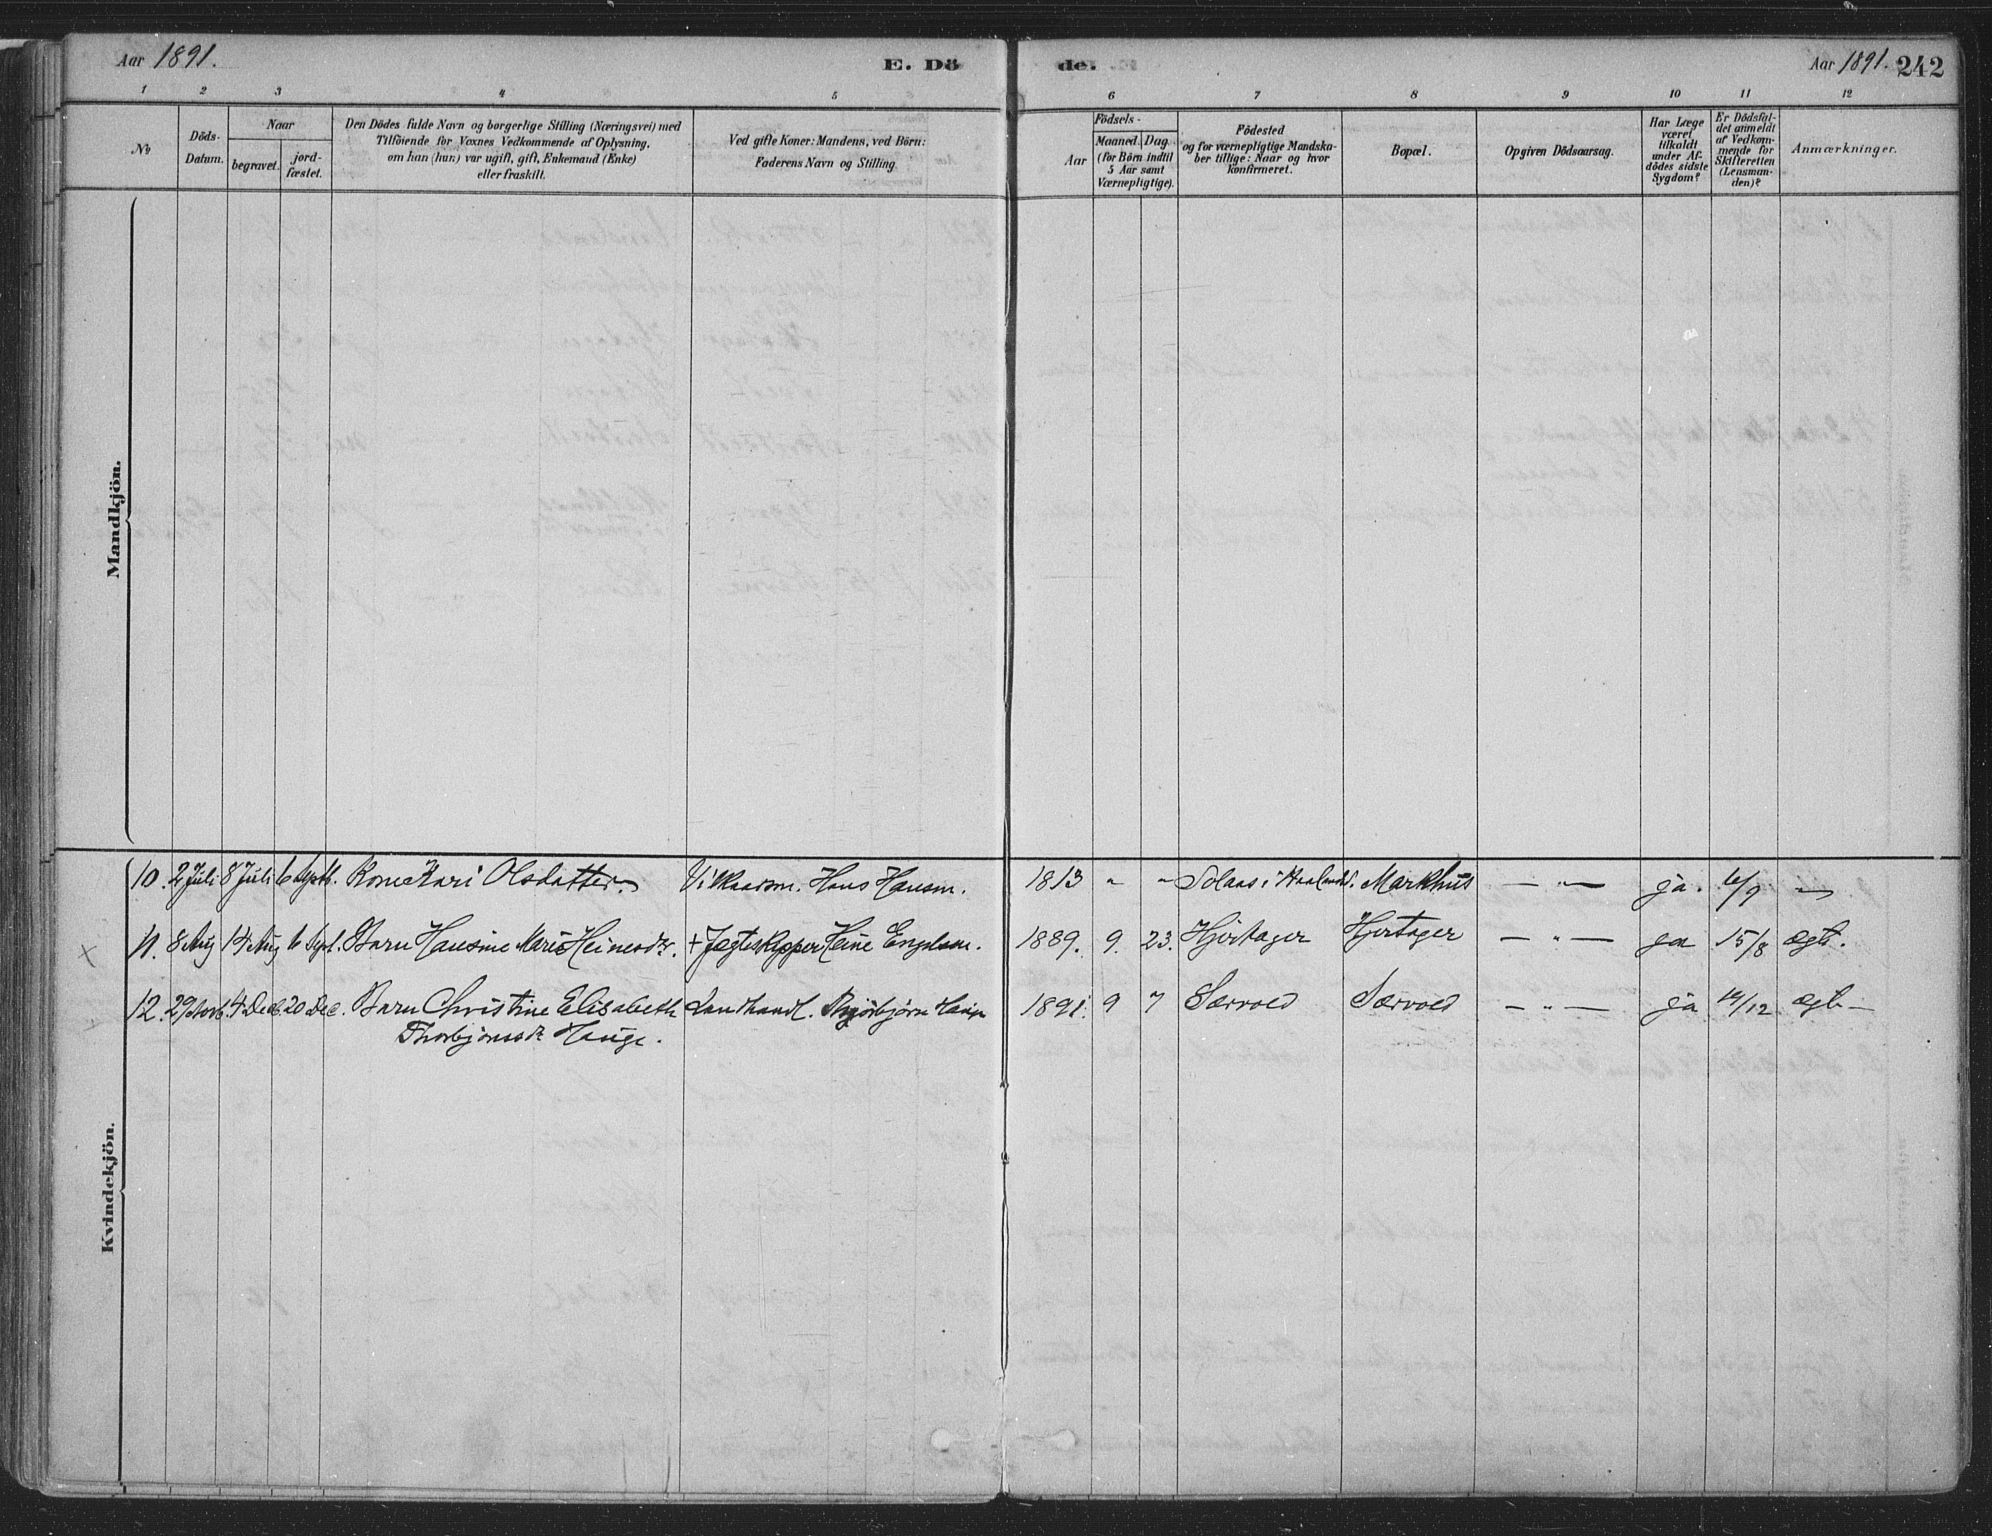 Aar 1891. E. Dö de. Aar 1891. 242
1 2 3 4 5 6 7 8 9 10 11 12
No
Döds-Datum.
Naar
begravet.
jord-fæstet.
Den Dödes fulde Navn og borgerlige Stilling (Næringsvei) med
Tilföiende for Voxnes Vedkommende af Oplysning,
om han (hun) var ugift, gift, Enkemand (Enke)
eller fraskilt.
Ved gifte Koner: Mandens, ved Börn:
Faderens Navn og Stilling.
Födsels-
Aar
Maaned. Dag
(for Börn indtil
5 Aar samt
Værnepligtige).
Födested
og for værnepligtige Mandska-
ber tillige: Naar og hvor
konfirmeret.
Bopæl.
Opgiven Dödsaarsag.
Har Læge
været
tilkaldt
under Af-
dödes sidste
Sygdom?
Er Dödsfal-
det anmeldt
af Vedkom-
mende for
Skifteretten
(Lensman-
den)?
Anmærkninger.
Mandkjön.
Kvindekjön.
10. 2 Juli 8 Juli 6 Septb. Kone Kari Olsdatter. Hans Hansen. 1813 " " Markhus — " — ja. 6/9
11. 8 Aug 14 Aug 6 Sept. Barn Hansine Marie Heinesdtr. + Jægteskipper Heine Engelsen. 1889. 9. 23. Hjertager Hjertager — " — ja 15/8 ægte.
12. 29 Novb. 4 Decb. 20 Dec. Barn Christine Elisabeth Landhandl. Hauge 1891. 9 7 Særvold Særvold — " — ja /12 ægte —
Thorbjørnsdtr Hauge.